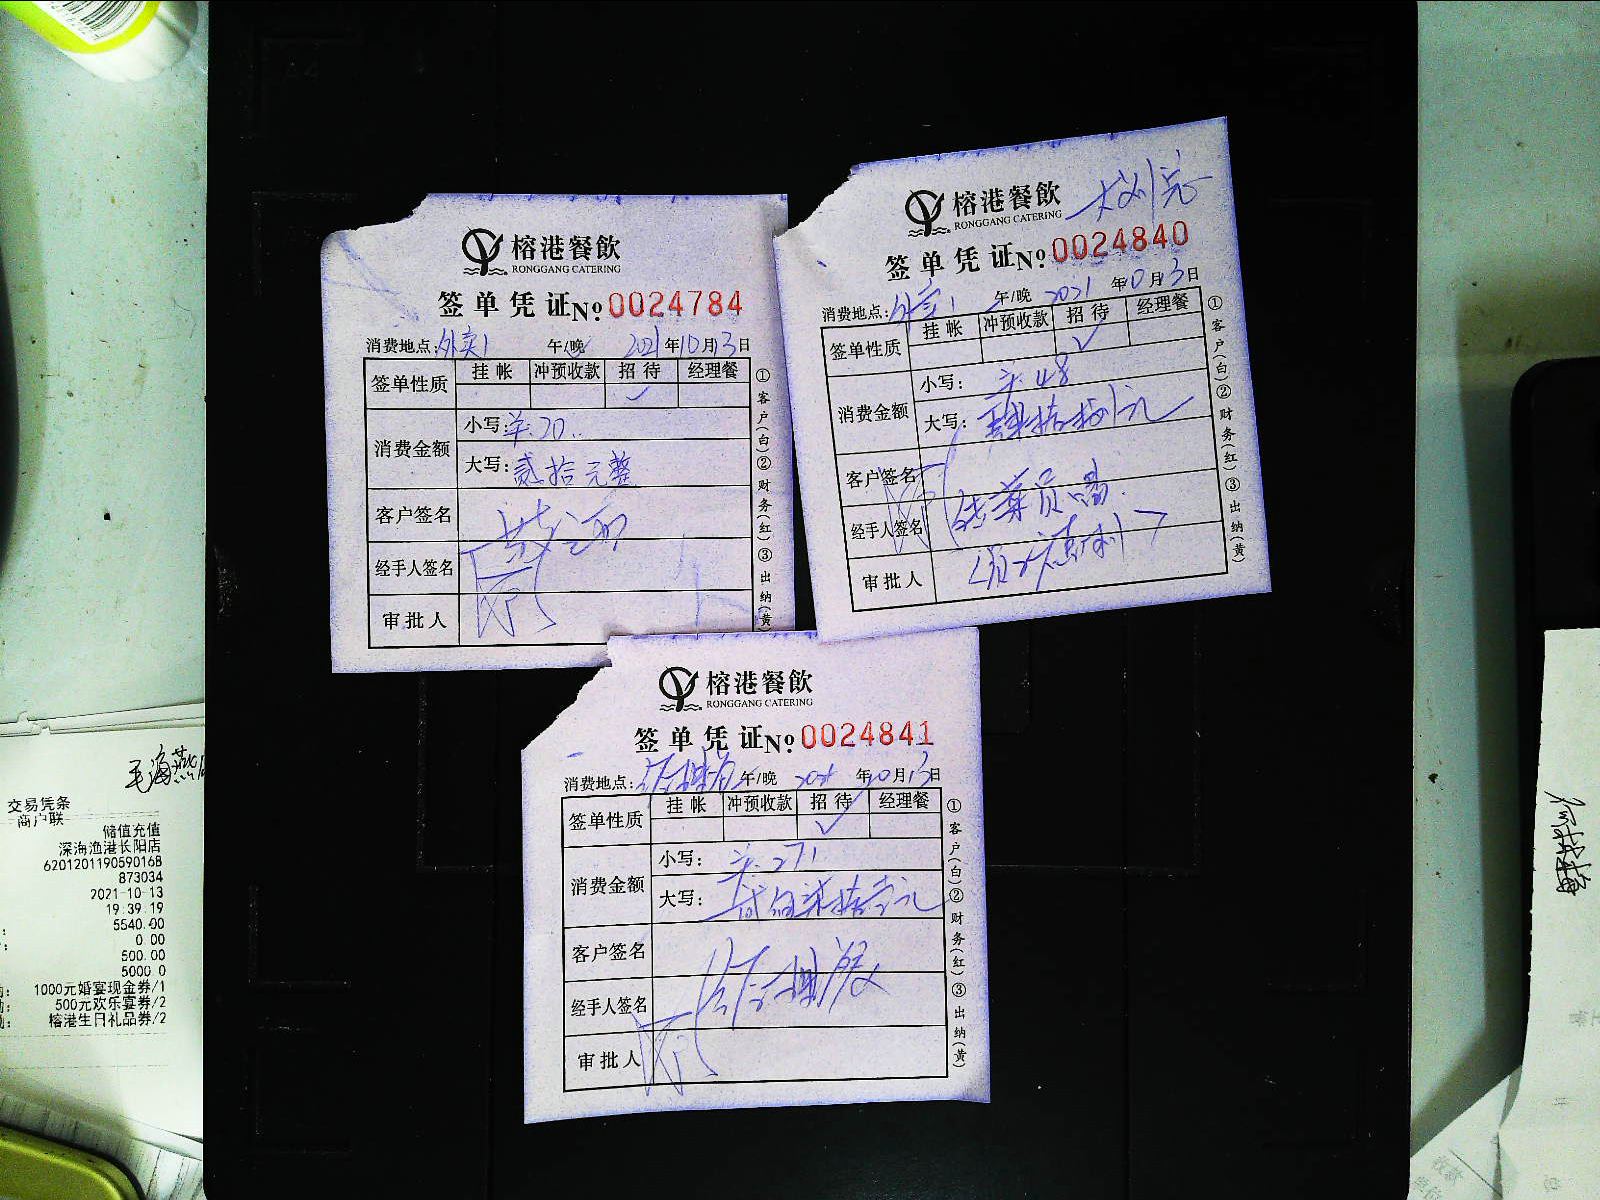 榕港餐飲
RONGGANG CATERING
签单凭证 No 0024784
消费地点:外卖1 午/晚 2021年10月13日
签单性质 挂帐 冲预收款 招待 经理餐
✓
消费金额 小写:羊.20..
大写:贰拾元整
客户签名
经手人签名
审批人
①客户(白)②财务(红)③出纳(黄)
榕港餐飲
RONGGANG CATERING
签单凭证 No 0024840
消费地点:外卖1 午/晚 2021年10月13日
签单性质 挂帐 冲预收款 招待 经理餐
✓
消费金额 小写:羊.48
大写:肆拾捌元
客户签名
经手人签名
审批人
①客户(白)②财务(红)③出纳(黄)
榕港餐飲
RONGGANG CATERING
签单凭证 No 0024841
消费地点: 午/晚 2021年10月13日
签单性质 挂帐 冲预收款 招待 经理餐
✓
消费金额 小写:羊.271
大写:贰佰柒拾壹元
客户签名
经手人签名
审批人
①客户(白)②财务(红)③出纳(黄)
毛海燕
交易凭条
商户联
储值充值
深海渔港长阳店
6201201190590168
873034
2021-10-13
19:39:19
5540.00
0.00
500.00
5000.0
1000元婚宴现金券/1
500元欢乐宴券/2
榕港生日礼品券/2